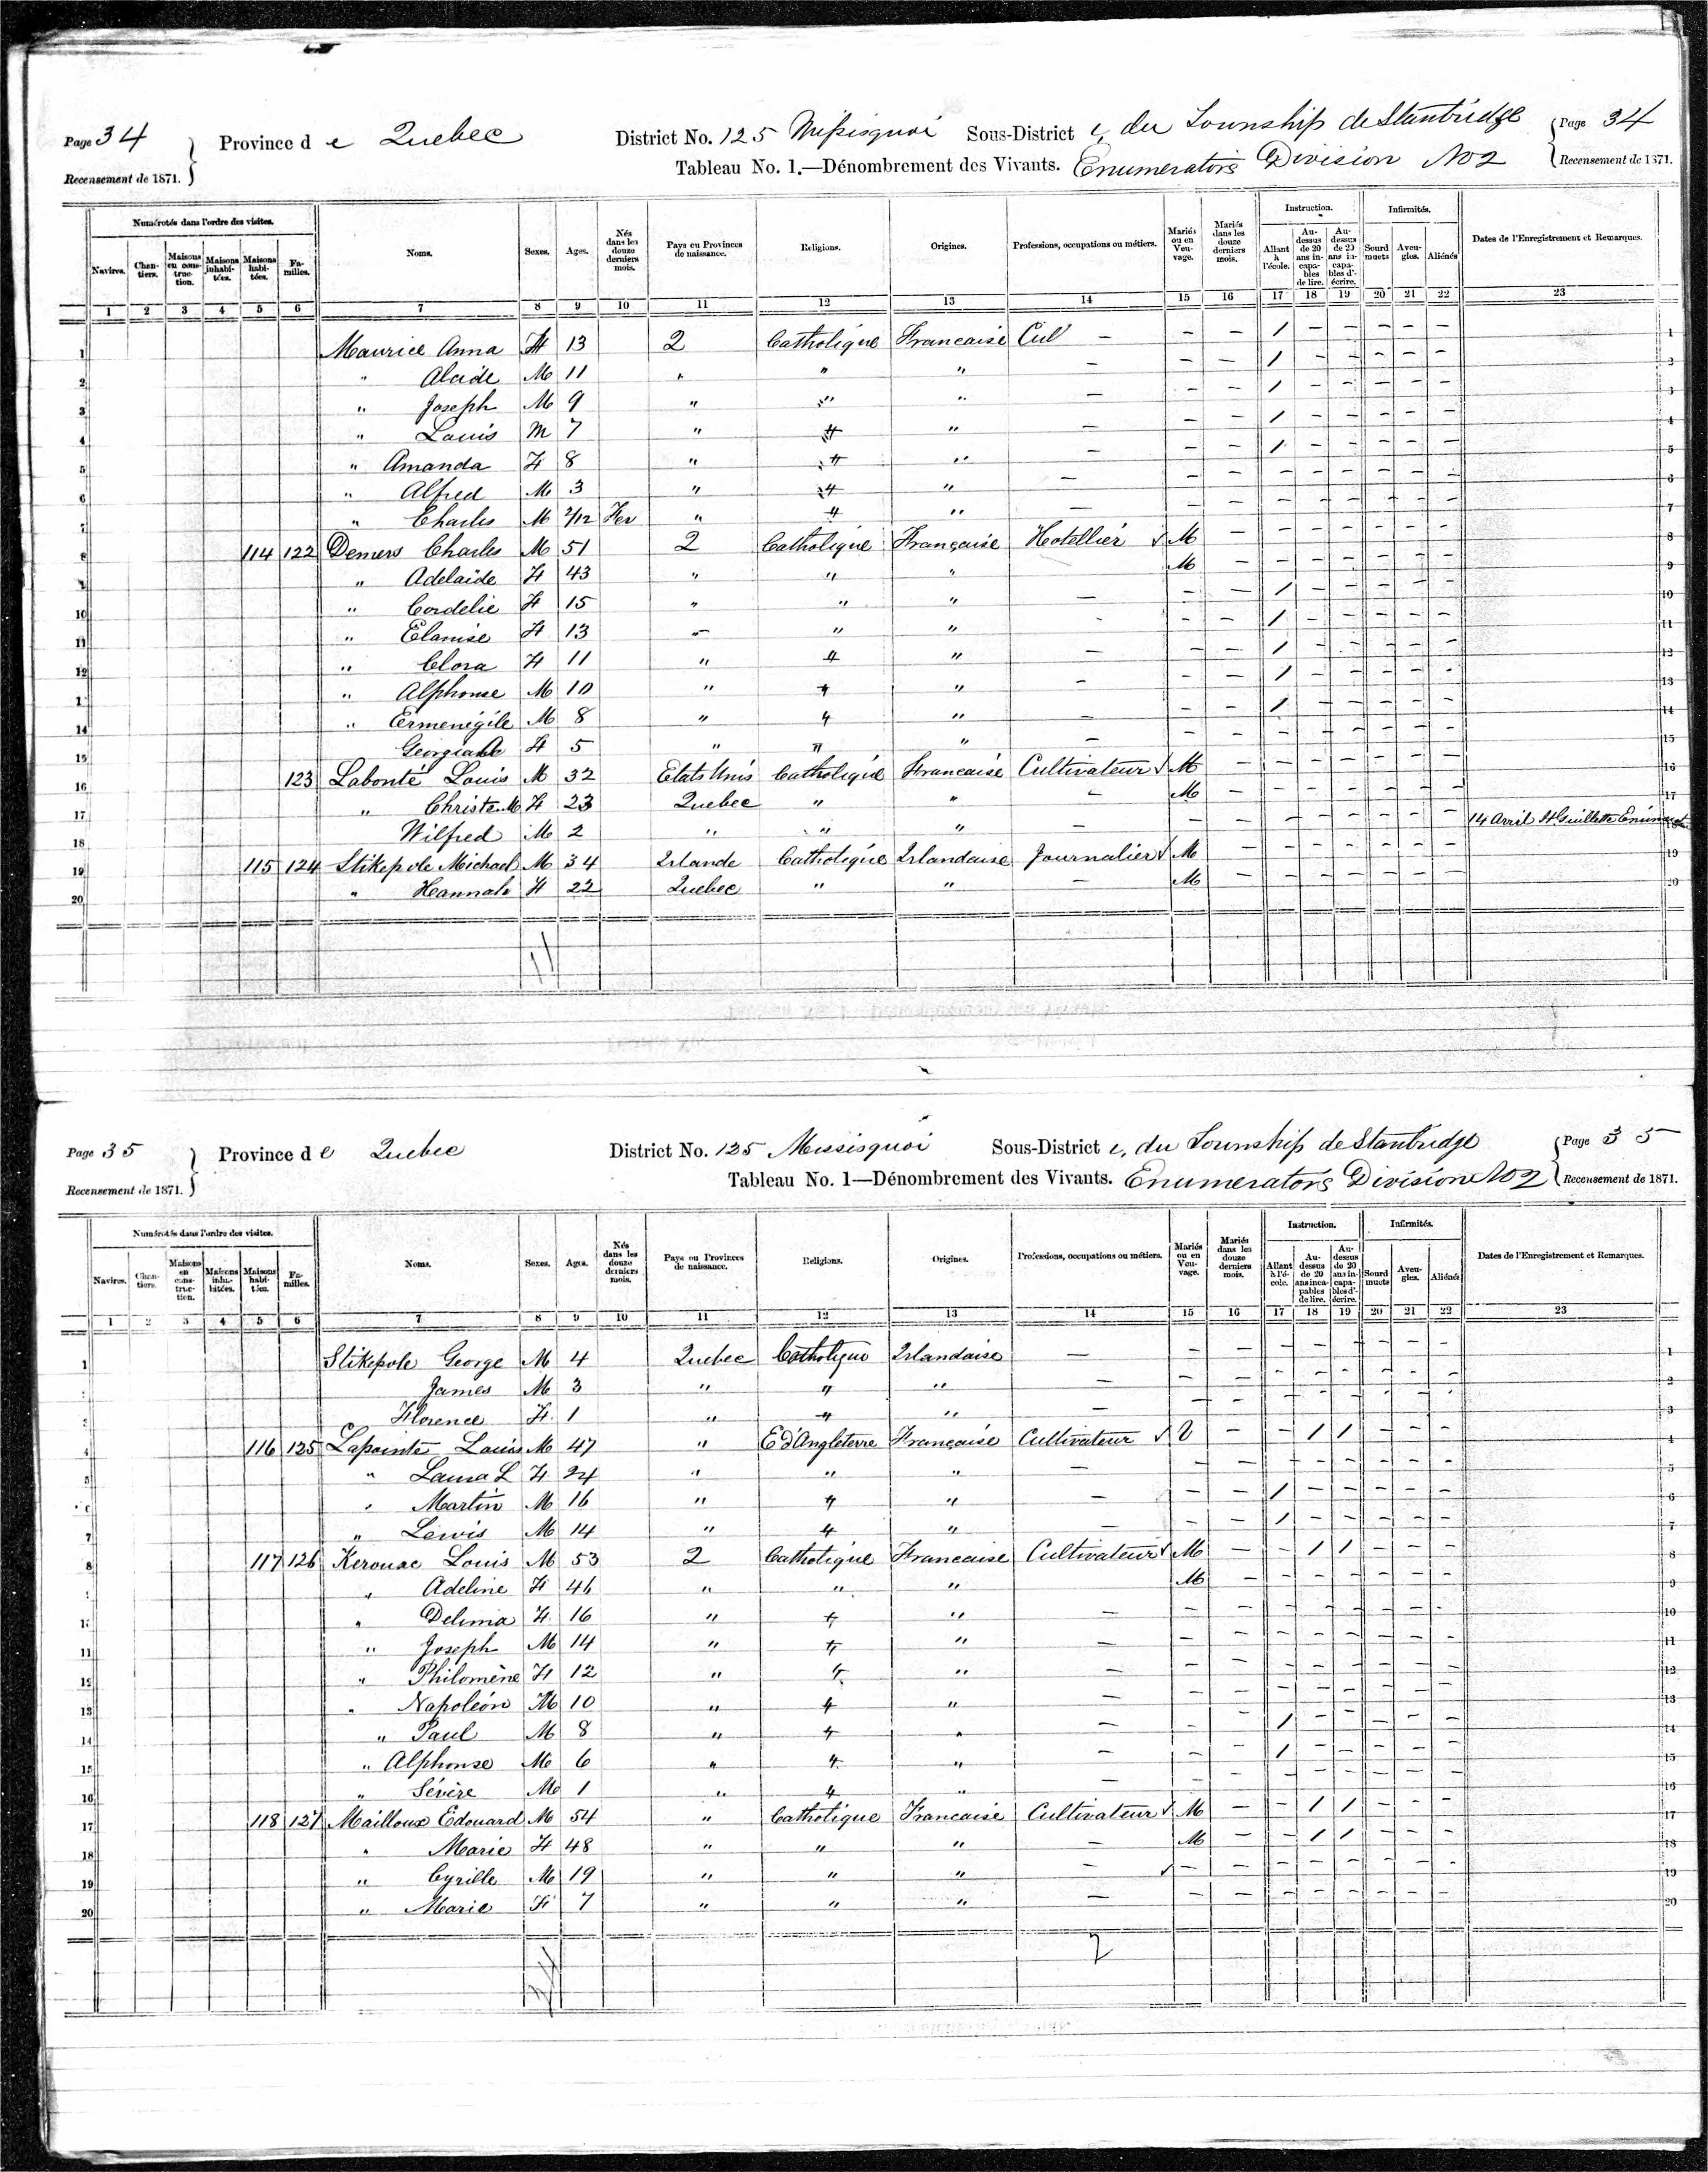 Page 34 Province de Quebec District No. 125 Missisquoi Sous-District e, du Township de Stanbridge Page 34
Recensement de 1871. Tableau No. 1.—Dénombrement des Vivants. Enumerators Division No 2 Recensement de 1871.
Numérotés dans l'ordre des visites. Instruction. Infirmités.
Navires. Chantiers. Maisons en construction. Maisons inhabitées. Maisons habitées. Familles. Noms. Sexes. Ages. Nés dans les douze derniers mois. Pays ou Provinces de naissance. Religions. Origines. Professions, occupations ou métiers. Mariés ou en Veuvage. Mariés dans les douze derniers mois. Allant à l'école. Au-dessus de 20 ans incapables de lire. Au-dessus de 20 ans incapables d'écrire. Sourd muets Aveugles. Aliénés Dates de l'Enregistrement et Remarques.
1 2 3 4 5 6 7 8 9 10 11 12 13 14 15 16 17 18 19 20 21 22 23
1 Maurice Anna F 13 2 Catholique Francaise Cul — — — 1 — — — — — 1
2 " Alcide M 11 " " " — — — 1 — — — — — 2
3 " Joseph M 9 " " " — — — 1 — — — — — 3
4 " Louis M 7 " " " — — — 1 — — — — — 4
5 " Amanda F 8 " " " — — — 1 — — — — — 5
6 " Alfred M 3 " " " — — — — — — — — — 6
7 " Charles M 2/12 Fev " " " — — — — — — — — — 7
8 114 122 Demers Charles M 51 2 Catholique Française Hotellier M — — — — — — — 8
9 " Adelaide F 43 " " " M — — — — — — — 9
10 " Cordelie F 15 " " " — — — 1 — — — — — 10
11 " Elanise F 13 " " " - — — 1 — — — — — 11
12 " Clora F 11 " " " — — — 1 — — — — — 12
1 " Alphonse M 10 " " " — — — 1 — — — — — 13
14 " Ermenégile M 8 " " " — — — 1 — — — — — 14
15 F 5 " " " — — — — — — — — — 15
16 123 Labonté Louis M 32 Etats Unis Catholique Francaise Cultivateur M — — — — — — — 16
17 " Christe M F 23 Quebec " " — M — — — — — — — 17
18 Wilfred M 2 " " " — — — — — — — — — 14 Avril
19 115 124 Stikepole Michael M 34 Irlande Catholique Irlandaise Journalier M — — — — — — — 19
20 " Hannah F 22 Quebec " " — M — — — — — — — 20
Page 35 Province de Quebec District No. 125 Missisquoi Sous-District e, du Township de Stanbridge Page 35
Recensement de 1871. Tableau No. 1—Dénombrement des Vivants. Enumerators Division No 2 Recensement de 1871.
Numérotés dans l'ordre des visites. Instruction. Infirmités.
Navires. Chantiers. Maisons en construction. Maisons inhabitées. Maisons habitées. Familles. Noms. Sexes. Ages. Nés dans les douze derniers mois. Pays ou Provinces de naissance. Religions. Origines. Professions, occupations ou métiers. Mariés ou en Veuvage. Mariés dans les douze derniers mois. Allant à l'école. Au-dessus de 20 ans incapables de lire. Au-dessus de 20 ans incapables d'écrire. Sourd muets Aveugles. Aliénés Dates de l'Enregistrement et Remarques.
1 2 3 4 5 6 7 8 9 10 11 12 13 14 15 16 17 18 19 20 21 22 23
1 Stikepole George M 4 Quebec Catholique Irlandaise — — — — — — — — — 1
James M 3 " " " — — — — — — — — — 2
Florence F 1 " " " — — — — — — — — — 3
4 116 125 Lapointe Louis M 47 " E d'Angleterre Française Cultivateur V — — 1 1 — — — 4
5 " Laura L F 24 " " " — — — — — — — — — 5
" Martin M 16 " " " — — — 1 — — — — — 6
7 " Lewis M 14 " " " — — — 1 — — — — — 7
8 117 126 Kerouac Louis M 53 2 Catholique Francaise Cultivateur M — — 1 1 — — — 8
" Adeline F 46 " " " M — — — — — — — 9
" Delima F 16 " " " — — — — — — — — — 10
11 " Joseph M 14 " " " — — — — — — — — — 11
12 " Philomène F 12 " " " — — — — — — — — — 12
13 " Napoléon M 10 " " " — — — — — — — — — 13
14 " Paul M 8 " " " — — — 1 — — — — — 14
15 " Alphonse M 6 " " " — — — 1 — — — — — 15
16 " Sévère M 1 " " " — — — — — — — — — 16
17 118 127 Mailloux Edouard M 54 " Catholique Francaise Cultivateur M — — 1 1 — — — 17
18 " Marie F 48 " " " — M — — 1 1 — — — 18
19 " Cyrille M 19 " " " — — — — — — — — — 19
20 " Marie F 7 " " " — — — — — — — — — 20
2